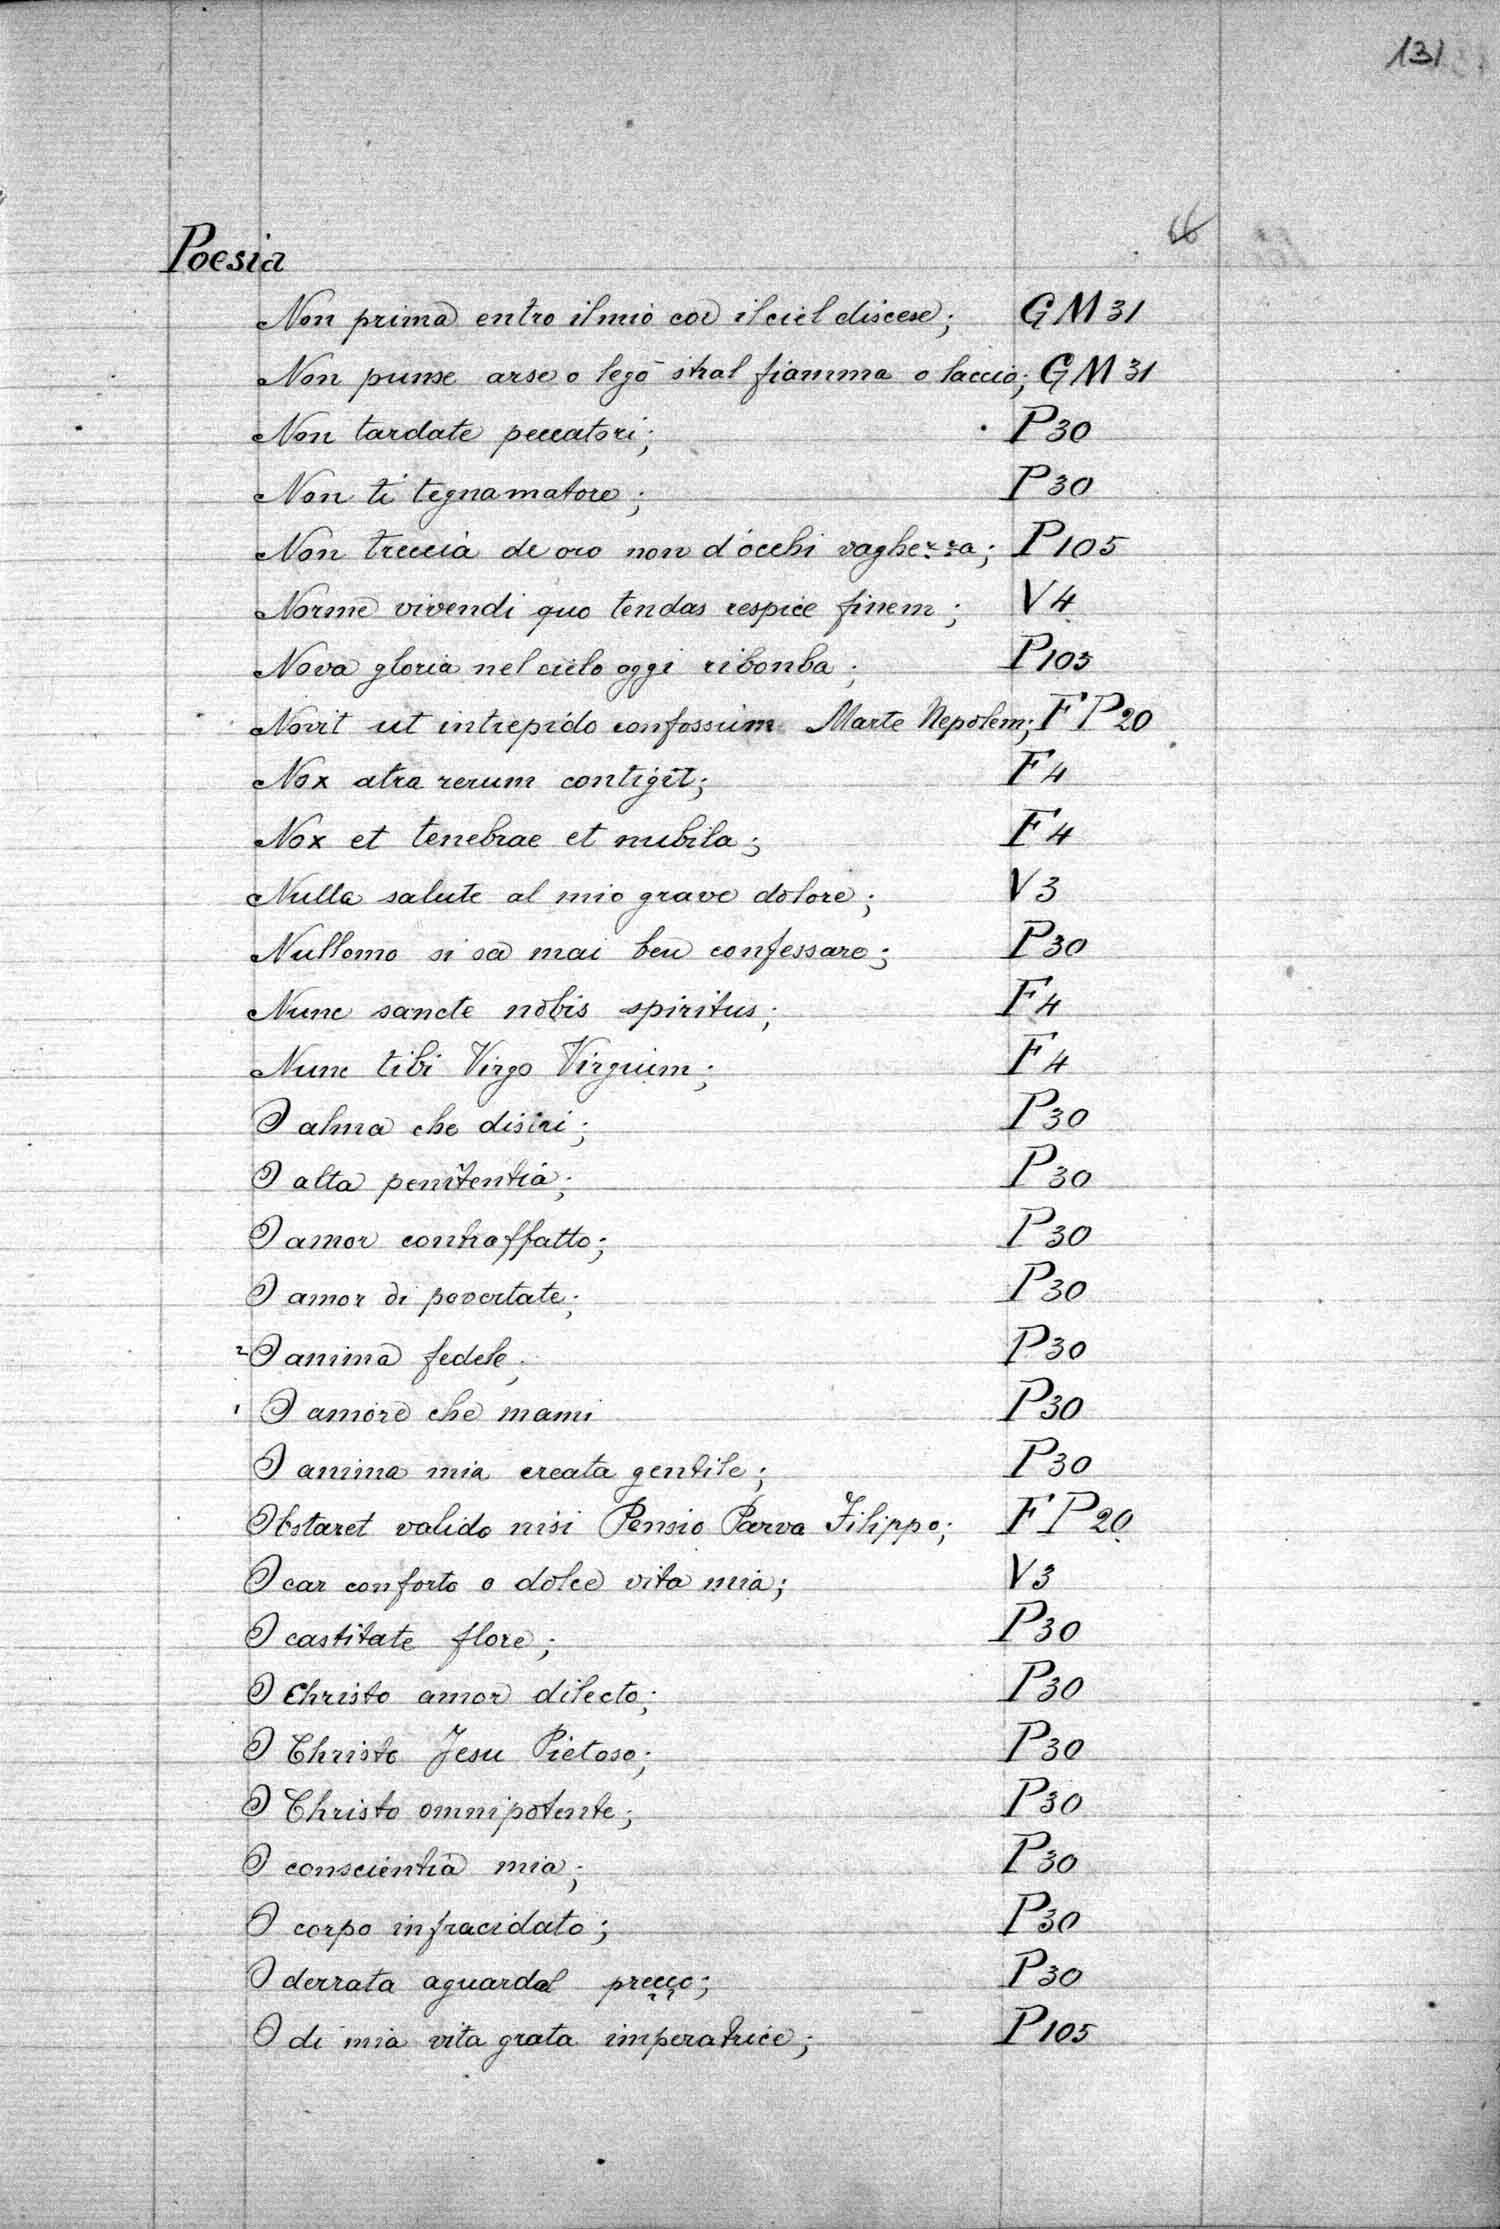 131
66
Poesia
Non prima entro il mio cor il ciel discese; GM 31
Non punse arse o legò stral fiamma o laccio; GM 31
Non tardate peccatori; P 30
Non ti tegnamatore; P 30
Non treccia de oro non d'occhi vaghezza; P 105
Norme vivendi quo tendas respice finem; V 4
Nova gloria nel cielo oggi ribonba; P 105
Novit ut intrepido confossum Marte Nepolem; FP 20
Nox atra rerum contigit; F 4
Nox et tenebrae et nubila; F 4
Nulla salute al mio grave dolore; V 3
Nullomo si sa mai ben confessare; P 30
Nunc sancte nobis spiritus; F 4
Nunc tibi Virgo Virginum; F 4
O alma che disiri; P 30
O alta penitentia; P 30
O amor contraffatto; P 30
O amor di povertate; P 30
2 O anima fedele; P 30
1 O amore che mami P 30
O anima mia creata gentile; P 30
Obstaret valido nisi Pensio Parva Filippo; FP 20
O car conforto o dolce vita mia; V 3
O castitate flore; P 30
O Christo amor dilecto; P 30
O Christo Jesu Pietoso; P 30
O Christo omnipotente; P 30
O conscientia mia; P 30
O corpo infracidato; P 30
O derrata aguardal preççо; P 30
O di mia vita grata imperatrice; P 105